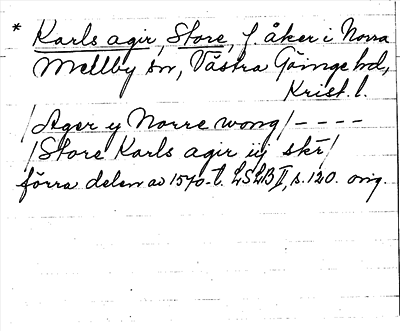 * Karls agir, Store, f. åker i Norra
Mellby sn, Västra Göinge hd,
Krist. l.
/Ager y Norre wong/ - - - -
/Store Karls agir iij skr/
förra delen av 1570-t. LSLB II, s. 120. orig.